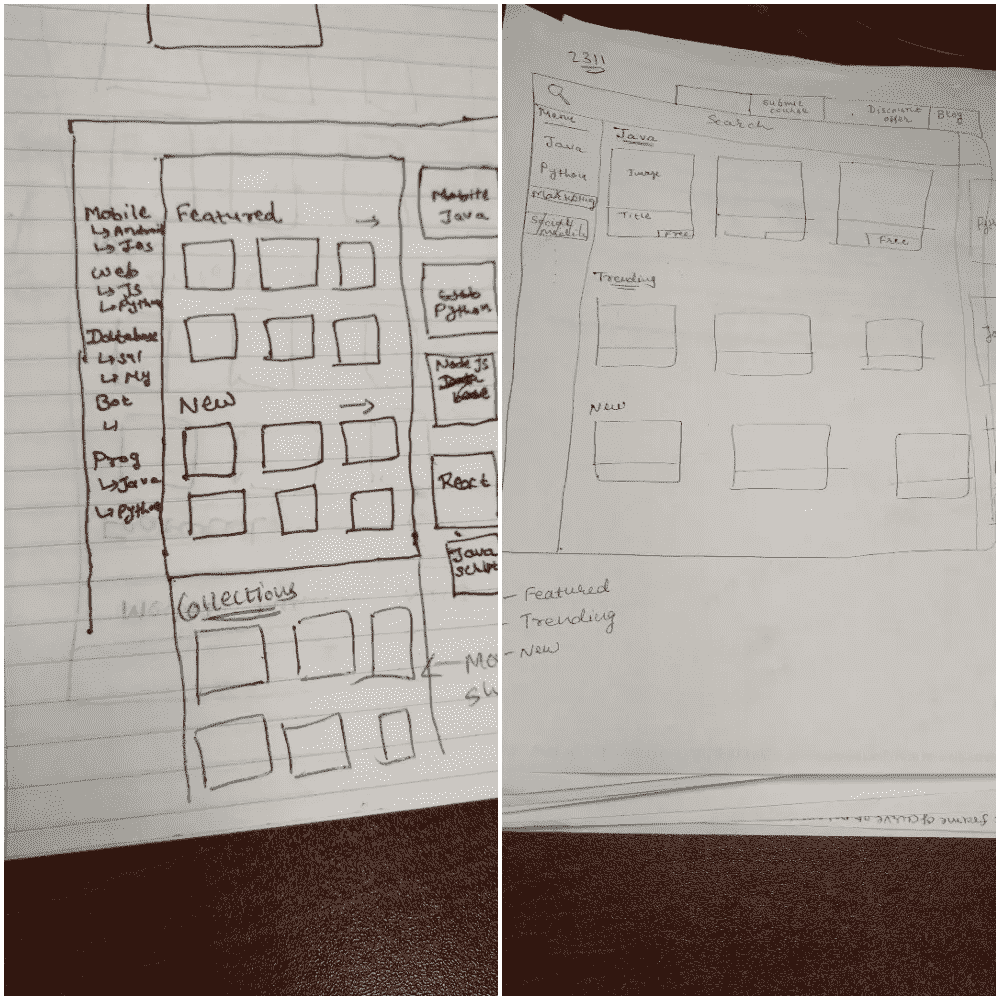 Mobile
↳ Android
Web
↳ JS
↳ Python
Database
↳ My
Bot
↳
Prog
↳ Java
↳ Python
Featured →
New →
Collections
Mobile
Java
Python
Node JS
React
Java
script
2311
Search
Submit
course
Discounts
offer
Blog
Menu
Java
Python
Marketing
Java
Image
Title
Free
Free
Trending
New
- Featured
- Trending
- New